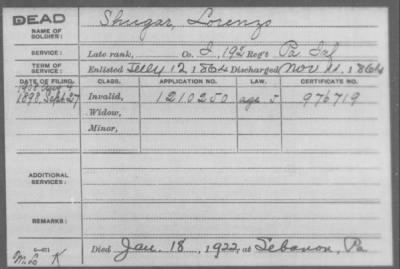 DEAD
NAME OF SOLDIER: Shugar, Lorenzo
SERVICE: Late rank, Co. I, 192 Reg't Pa. Inf
TERM OF SERVICE: Enlisted July 12 1864 Discharged Nov 11, 1864
DATE OF FILING. CLASS. APPLICATION NO. LAW. CERTIFICATE NO.
1908
1898, Sept 27 Invalid, 1210250 age 5 976719
Widow,
Minor,
ADDITIONAL SERVICES:
REMARKS:
Died Jan. 18, 1922, at Lebanon, Pa